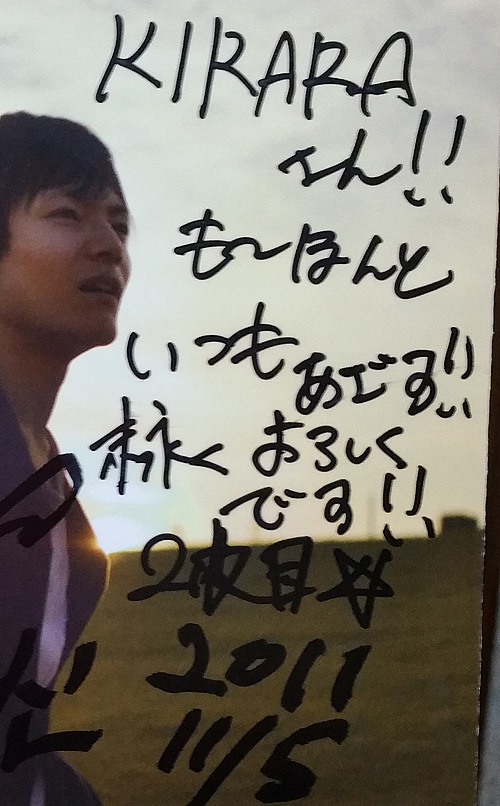 KIRARA
さん!!
も〜ほんと
いつも
あざす!!
末永く よろしく
です!!
2枚目☆
2011
11/5